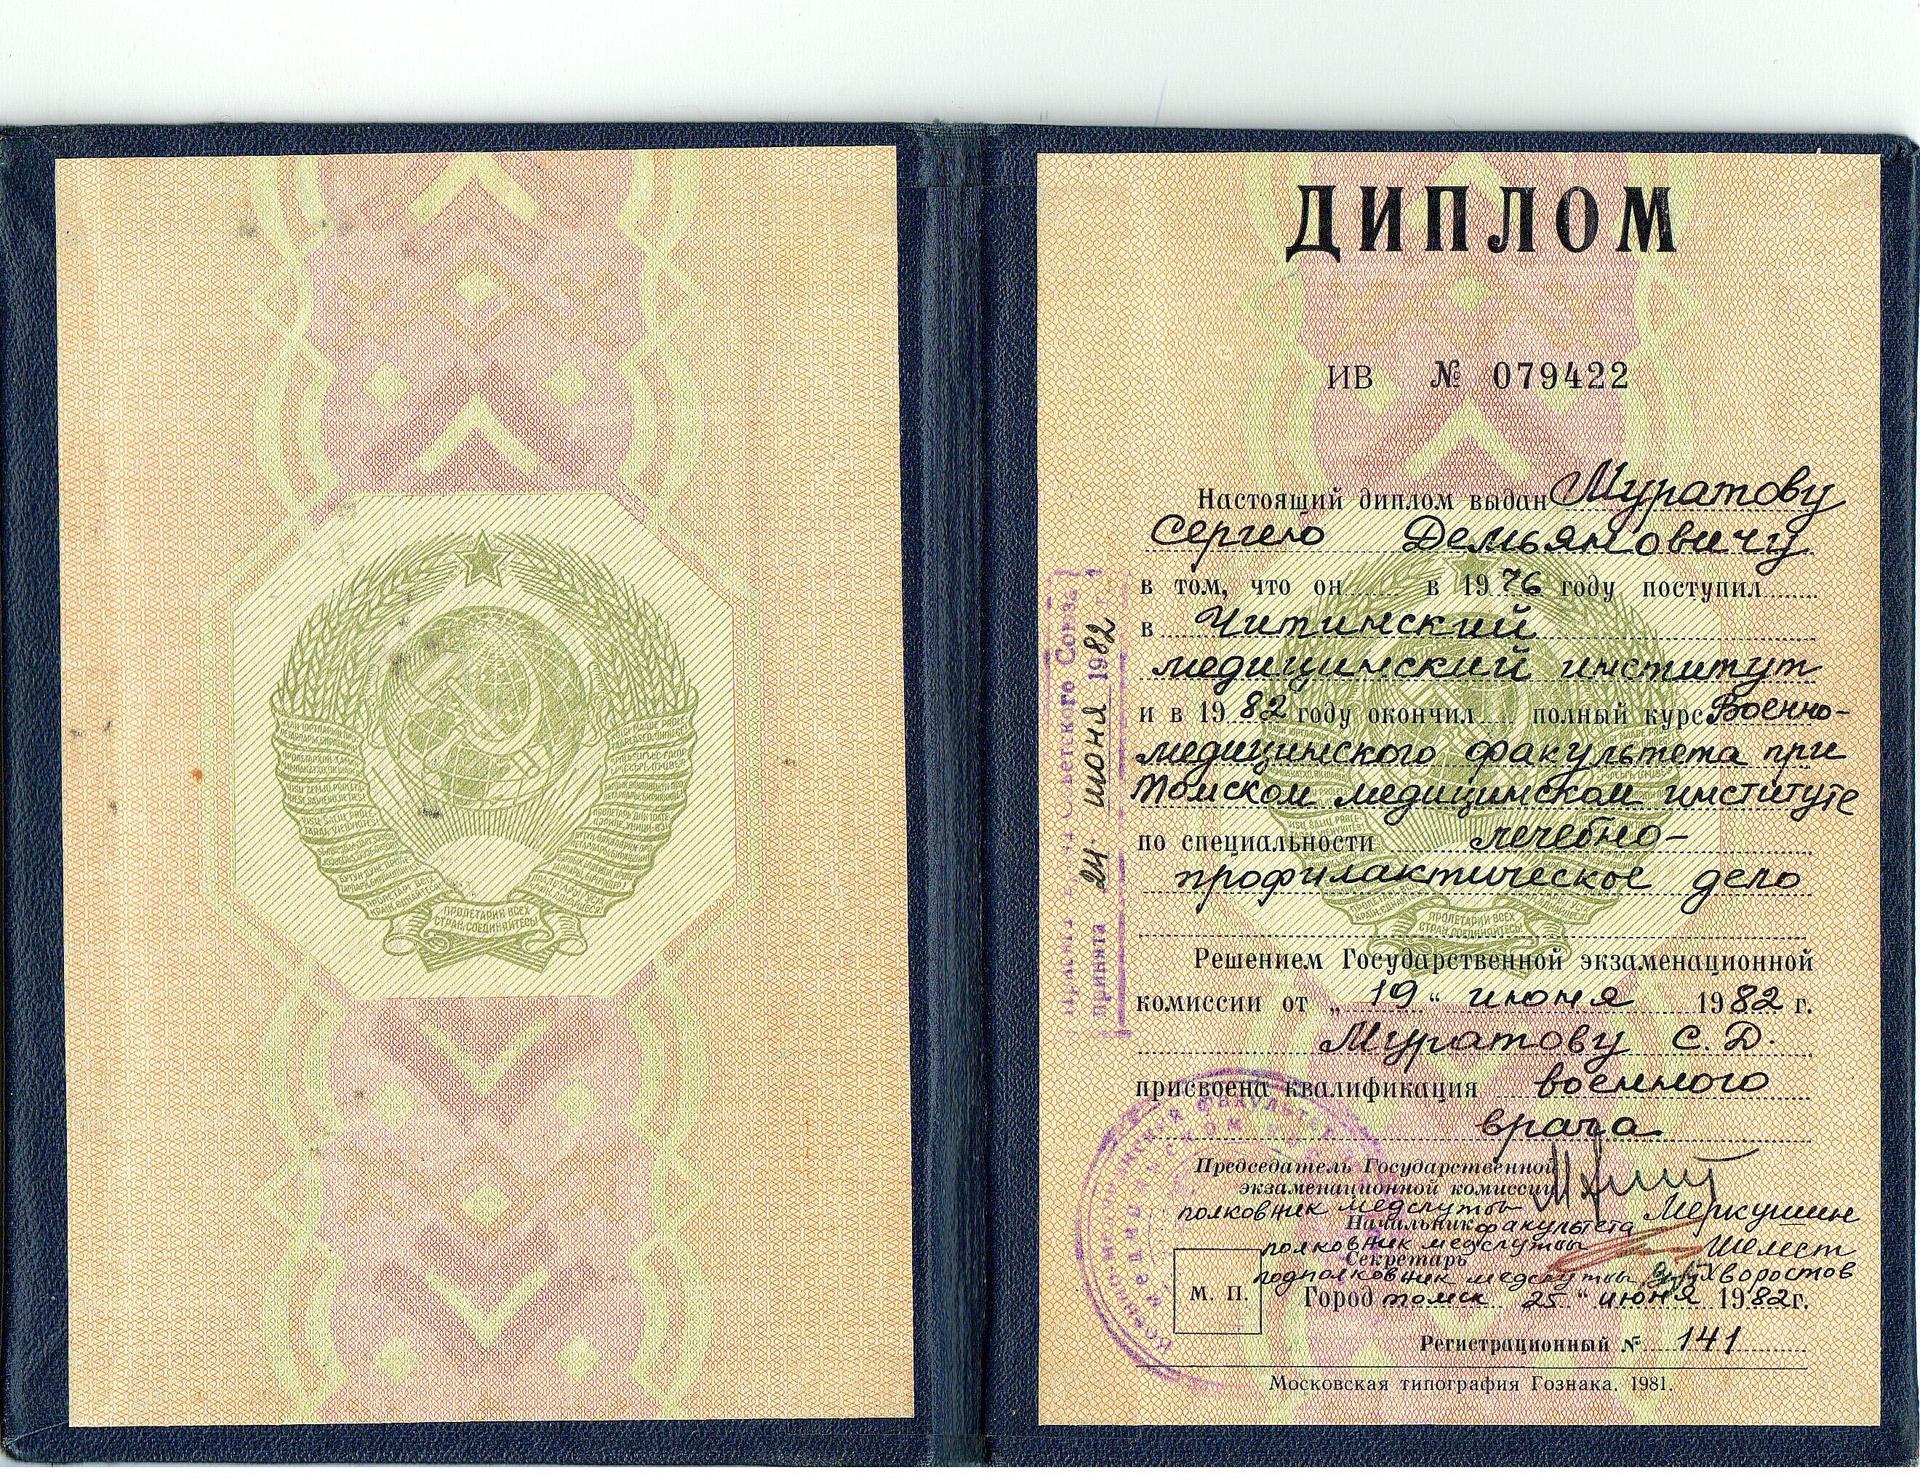 ПРОЛЕТАРИИ ВСЕХ
СТРАН, СОЕДИНЯЙТЕСЬ!
ДИПЛОМ
ИВ № 079422
Настоящий диплом выдан Муратову
Сергею Демьяновичу
в том, что он в 1976 году поступил
в Читинский
медицинский институт
и в 1982 году окончил полный курс Военно-
медицинского факультета при
Томском медицинском институте
по специальности лечебно-
профилактическое дело
Решением Государственной экзаменационной
комиссии от „19“ июня 1982 г.
Муратову С. Д.
присвоена квалификация военного
врача
Председатель Государственной
экзаменационной комиссии
полковник медслужбы Меркушин
Начальник факультета
полковник медслужбы Шелест
Секретарь
подполковник медслужбы Хворостов
М. П.
Город Томск 25 “ июня 1982г.
Регистрационный № 141
Московская типография Гознака. 1981.
Советского Союза
Принята 24. июня 1982 г.